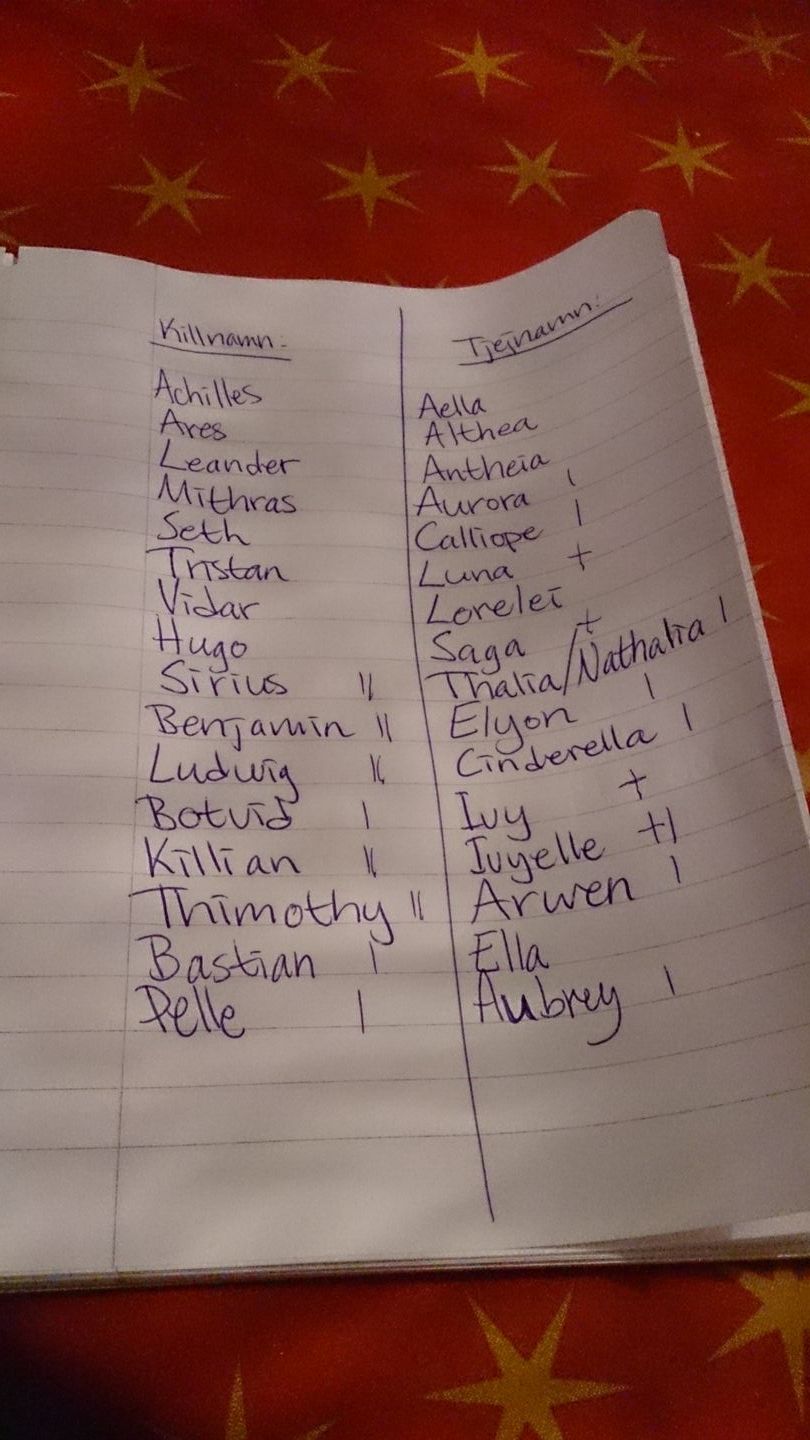 Killnamn:
Achilles
Ares
Leander
Mithras
Seth
Tristan
Vidar
Hugo
Sirius ||
Benjamin ||
Ludwig ||
Botvid |
Killian ||
Thimothy ||
Bastian |
Pelle |
Tjejnamn:
Aella
Althea
Antheia
Aurora |
Calliope |
Luna +
Lorelei
Saga +
Thalia/Nathalia |
Elyon |
Cinderella |
Ivy +
Ivyelle +|
Arwen |
Ella
Aubrey |